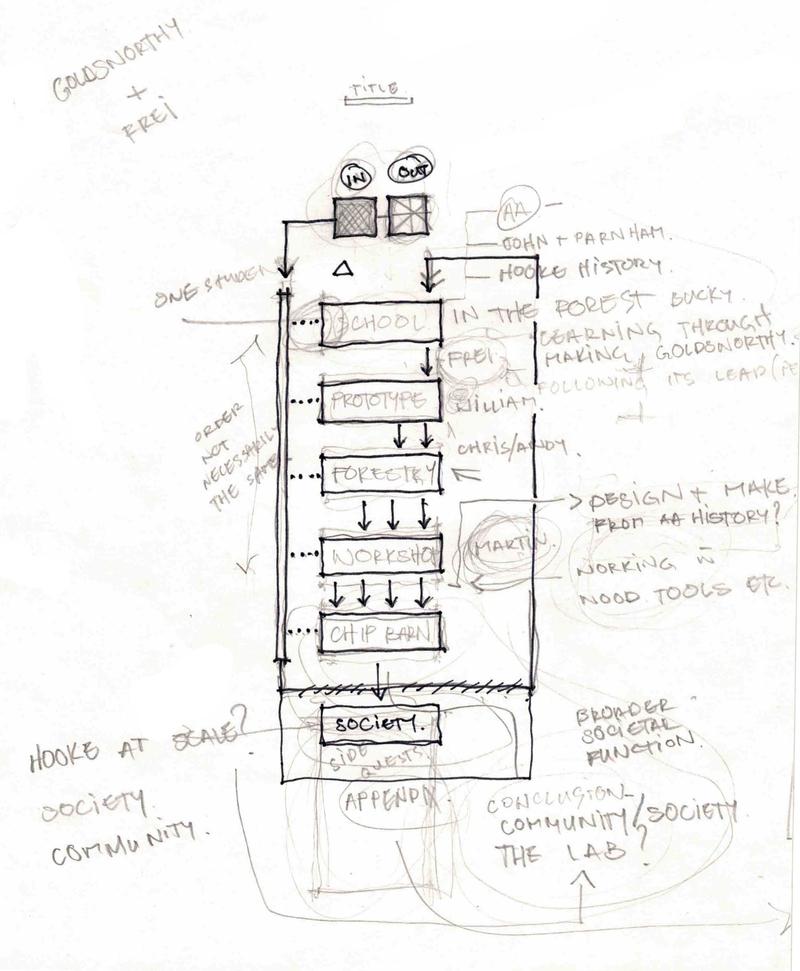 GOLDSWORTHY
+
FREI
TITLE
IN
OUT
AA –
JOHN + PARNHAM.
HOOKE HISTORY.
ONE STUDENT
SCHOOL
IN THE FOREST BUCKY.
LEARNING THROUGH
MAKING, GOLDSWORTHY.
FOLLOWING ITS LEAD
FREI
PROTOTYPE
WILLIAM.
ORDER
NOT
NECESSARILY
THE SAME
CHRIS/ANDY.
FORESTRY
DESIGN + MAKE
FROM AA HISTORY?
WORKSHOP
MARTIN.
WORKING W
WOOD TOOLS ETC.
CHIP BARN
SOCIETY.
HOOKE AT SCALE?
SOCIETY.
COMMUNITY.
BROADER
SOCIETAL
FUNCTION.
SIDE
QUESTS.
APPENDIX.
CONCLUSION
COMMUNITY/SOCIETY
THE LAB?